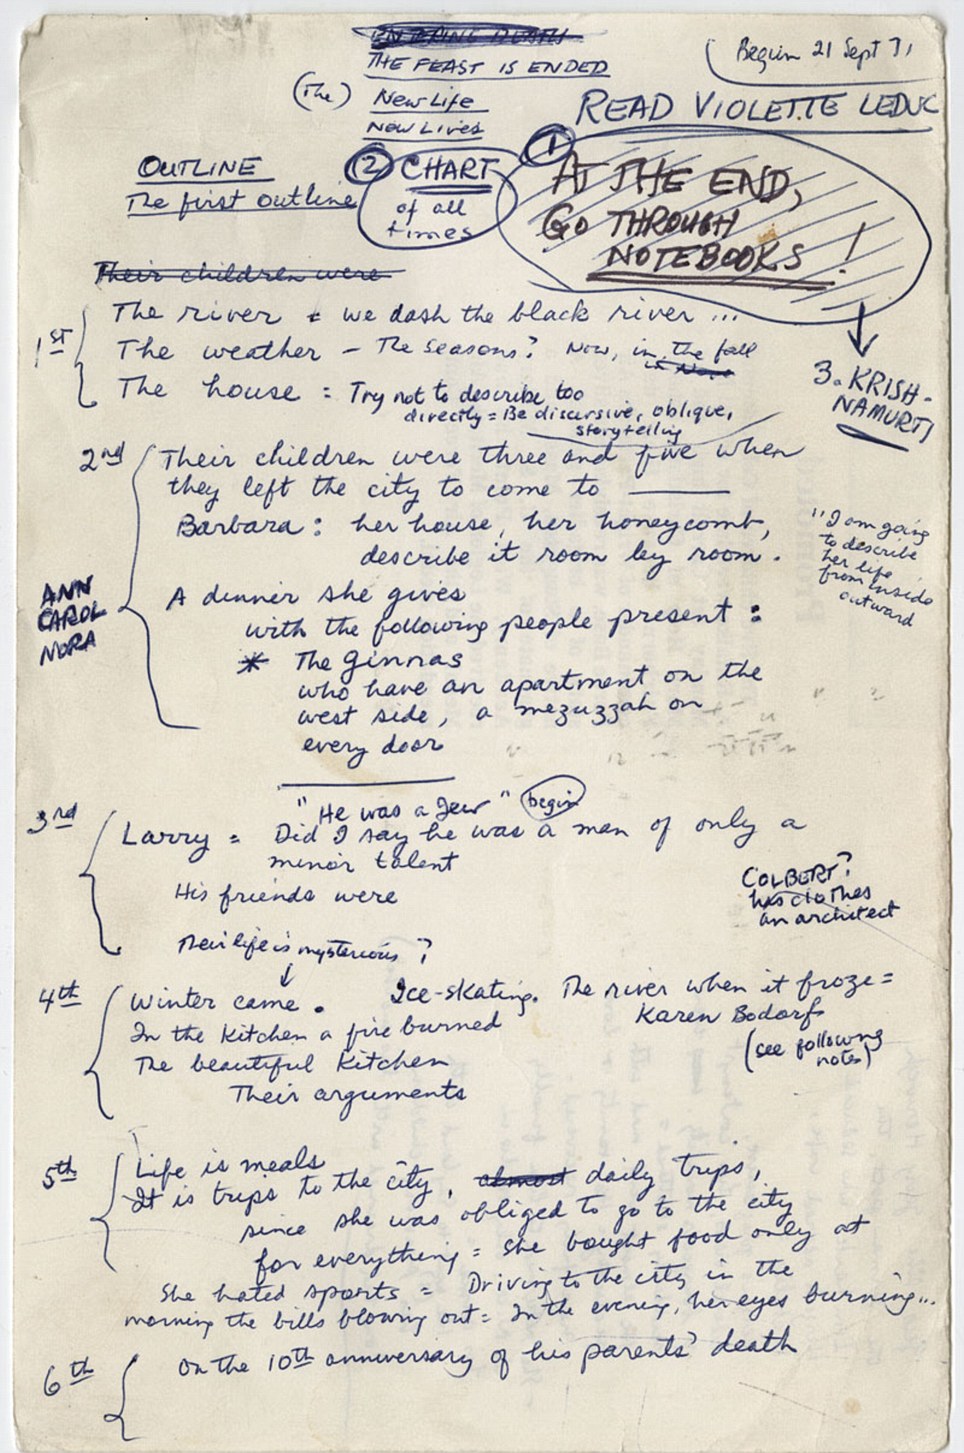 ENTERING DEATH
THE FEAST IS ENDED
(The) New Life
New Lives
Begun 21 Sept 71
READ VIOLETTE LEDUC
OUTLINE
The first outline
② CHART
of all
times
① AT THE END,
GO THROUGH
NOTEBOOKS !
3. KRISH-
NAMURTI
Their children were
1st
The river = we dash the black river ...
The weather - The seasons? Now, in the fall
The house = Try not to describe too
directly = Be discursive, oblique,
storytelling
2nd
Their children were three and five when
they left the city to come to ______
Barbara: her house, her honeycomb,
describe it room by room.
"I am going
to describe
her life
from inside
outward
ANN
CAROL
NORA
A dinner she gives
with the following people present :
* The Ginnas
who have an apartment on the
west side, a mezuzzah on
every door
3rd
"He was a Jew" begin
Larry = Did I say he was a man of only a
minor talent
His friends were
Their life is mysterious ?
COLBERT?
has clothes
an architect
4th
Winter came. Ice-skating. The river when it froze =
Karen Bodorfs
(see following
notes)
In the kitchen a fire burned
The beautiful kitchen
Their arguments
5th
Life is meals
It is trips to the city, almost daily trips,
since she was obliged to go to the city
for everything = she bought food only at
She hated sports = Driving to the city in the
morning the bills blowing out = In the evening, her eyes burning...
6th
On the 10th anniversary of his parents' death